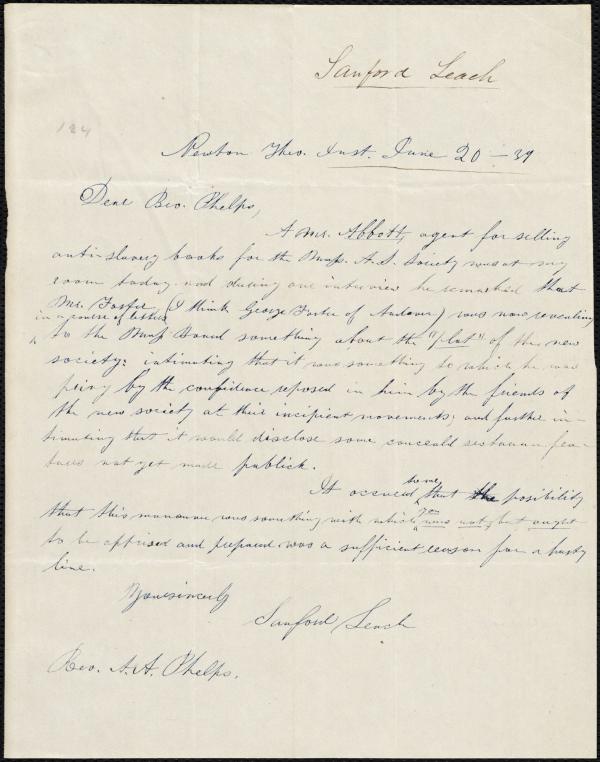 Sanford Leach
124
Newton Theo. Inst. June 20 - 39
Dear Bro. Phelps,
A Mr. Abbott, agent for selling
anti-slavery books for the Mass. A.S. Society was at my
room today and during our interview he remarked that
Mr. Foster (I think George Foster of Andover) was now revealing
in a course of letters
to the Mass Board something about the "plot" of the new
society; intimating that it was something to which he was
privy by the confidence reposed in him by the friends of
the new society at their incipient movements; and further in-
timating that it would disclose some conceald sectarian fea-
tures not yet made publick.
It occured to me that the posibility
that this manouver was something with which you was not, but ought
to be apprised and prepared was a sufficient reason for a hasty
line.
Yours sincerely
Sanford Leach
Rev. A. A. Phelps.